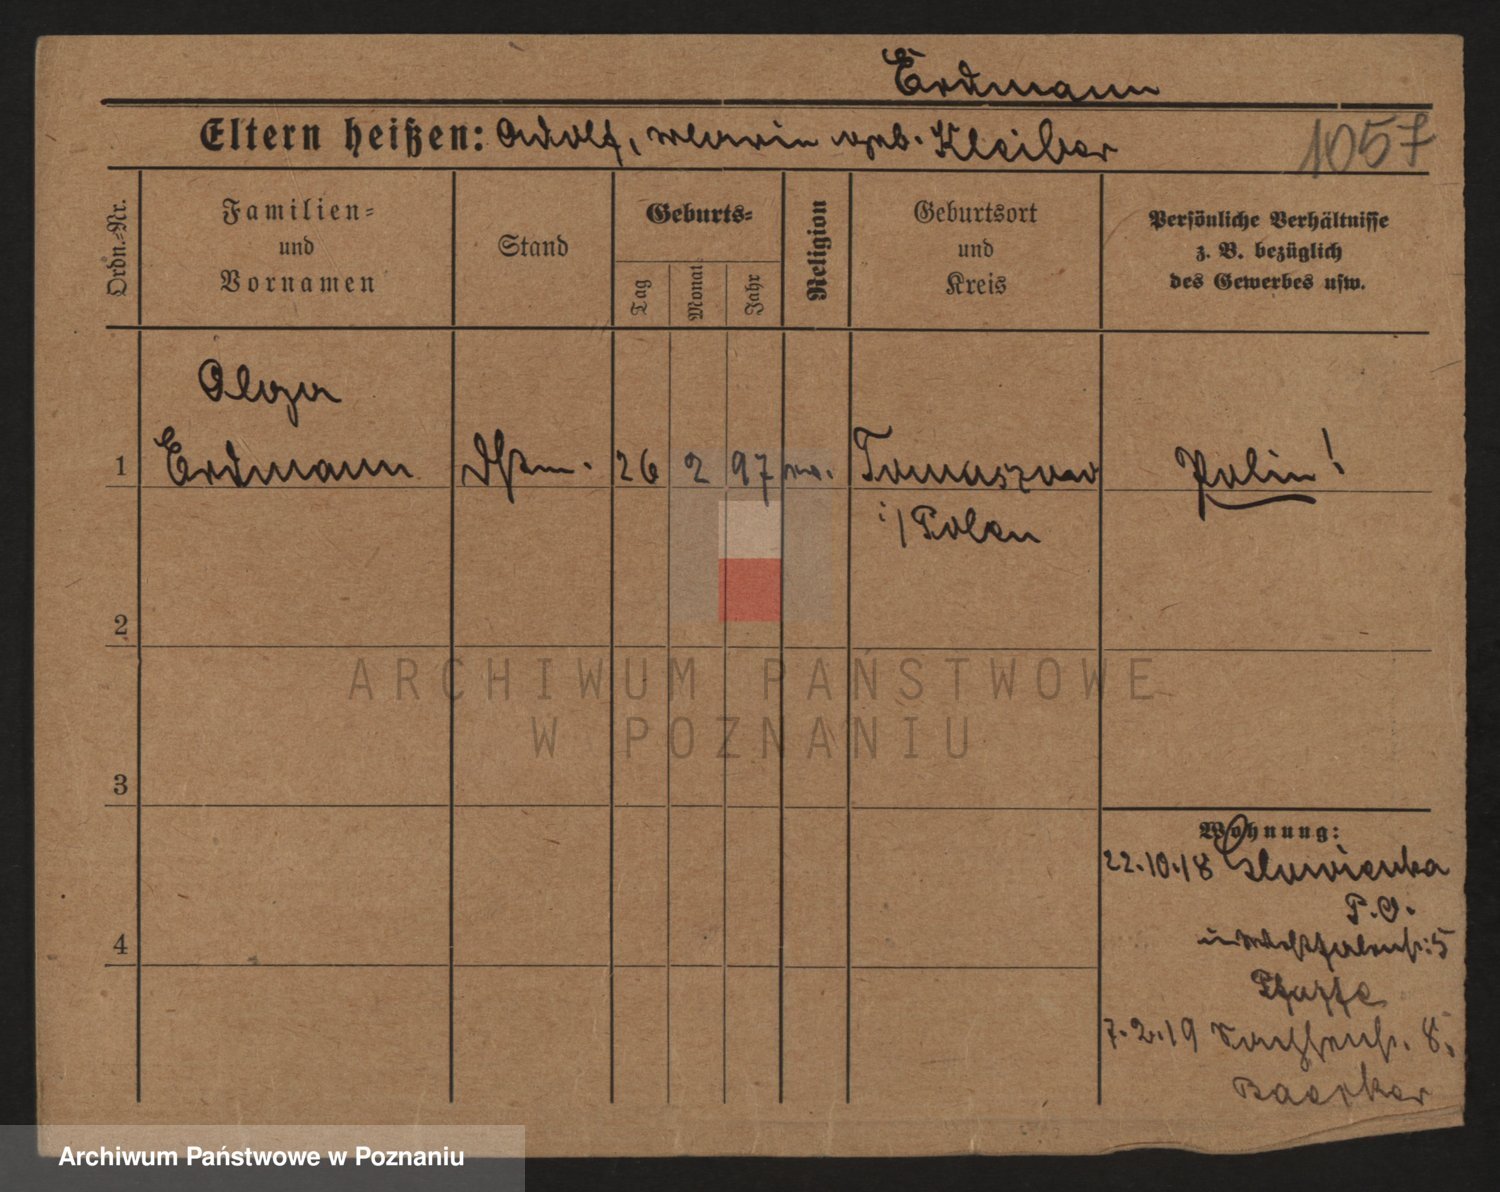 Erdmann
Eltern heißen: Adolf, Marie geb. Kleiber
1057
Ordn.-Nr.
Familien-
und
Vornamen
Stand
Geburts-
Tag
Monat
Jahr
Religion
Geburtsort
und
Kreis
Persönliche Verhältnisse
z. B. bezüglich
des Gewerbes usw.
Olga
1 Erdmann 26 2 97 ev. Tomaszow Polin!
i/Polen
2
3
4
Wohnung:
22.10.18
P.O.
5
7.2.19 8,
ARCHIWUM PAŃSTWOWE
W POZNANIU
Archiwum Państwowe w Poznaniu